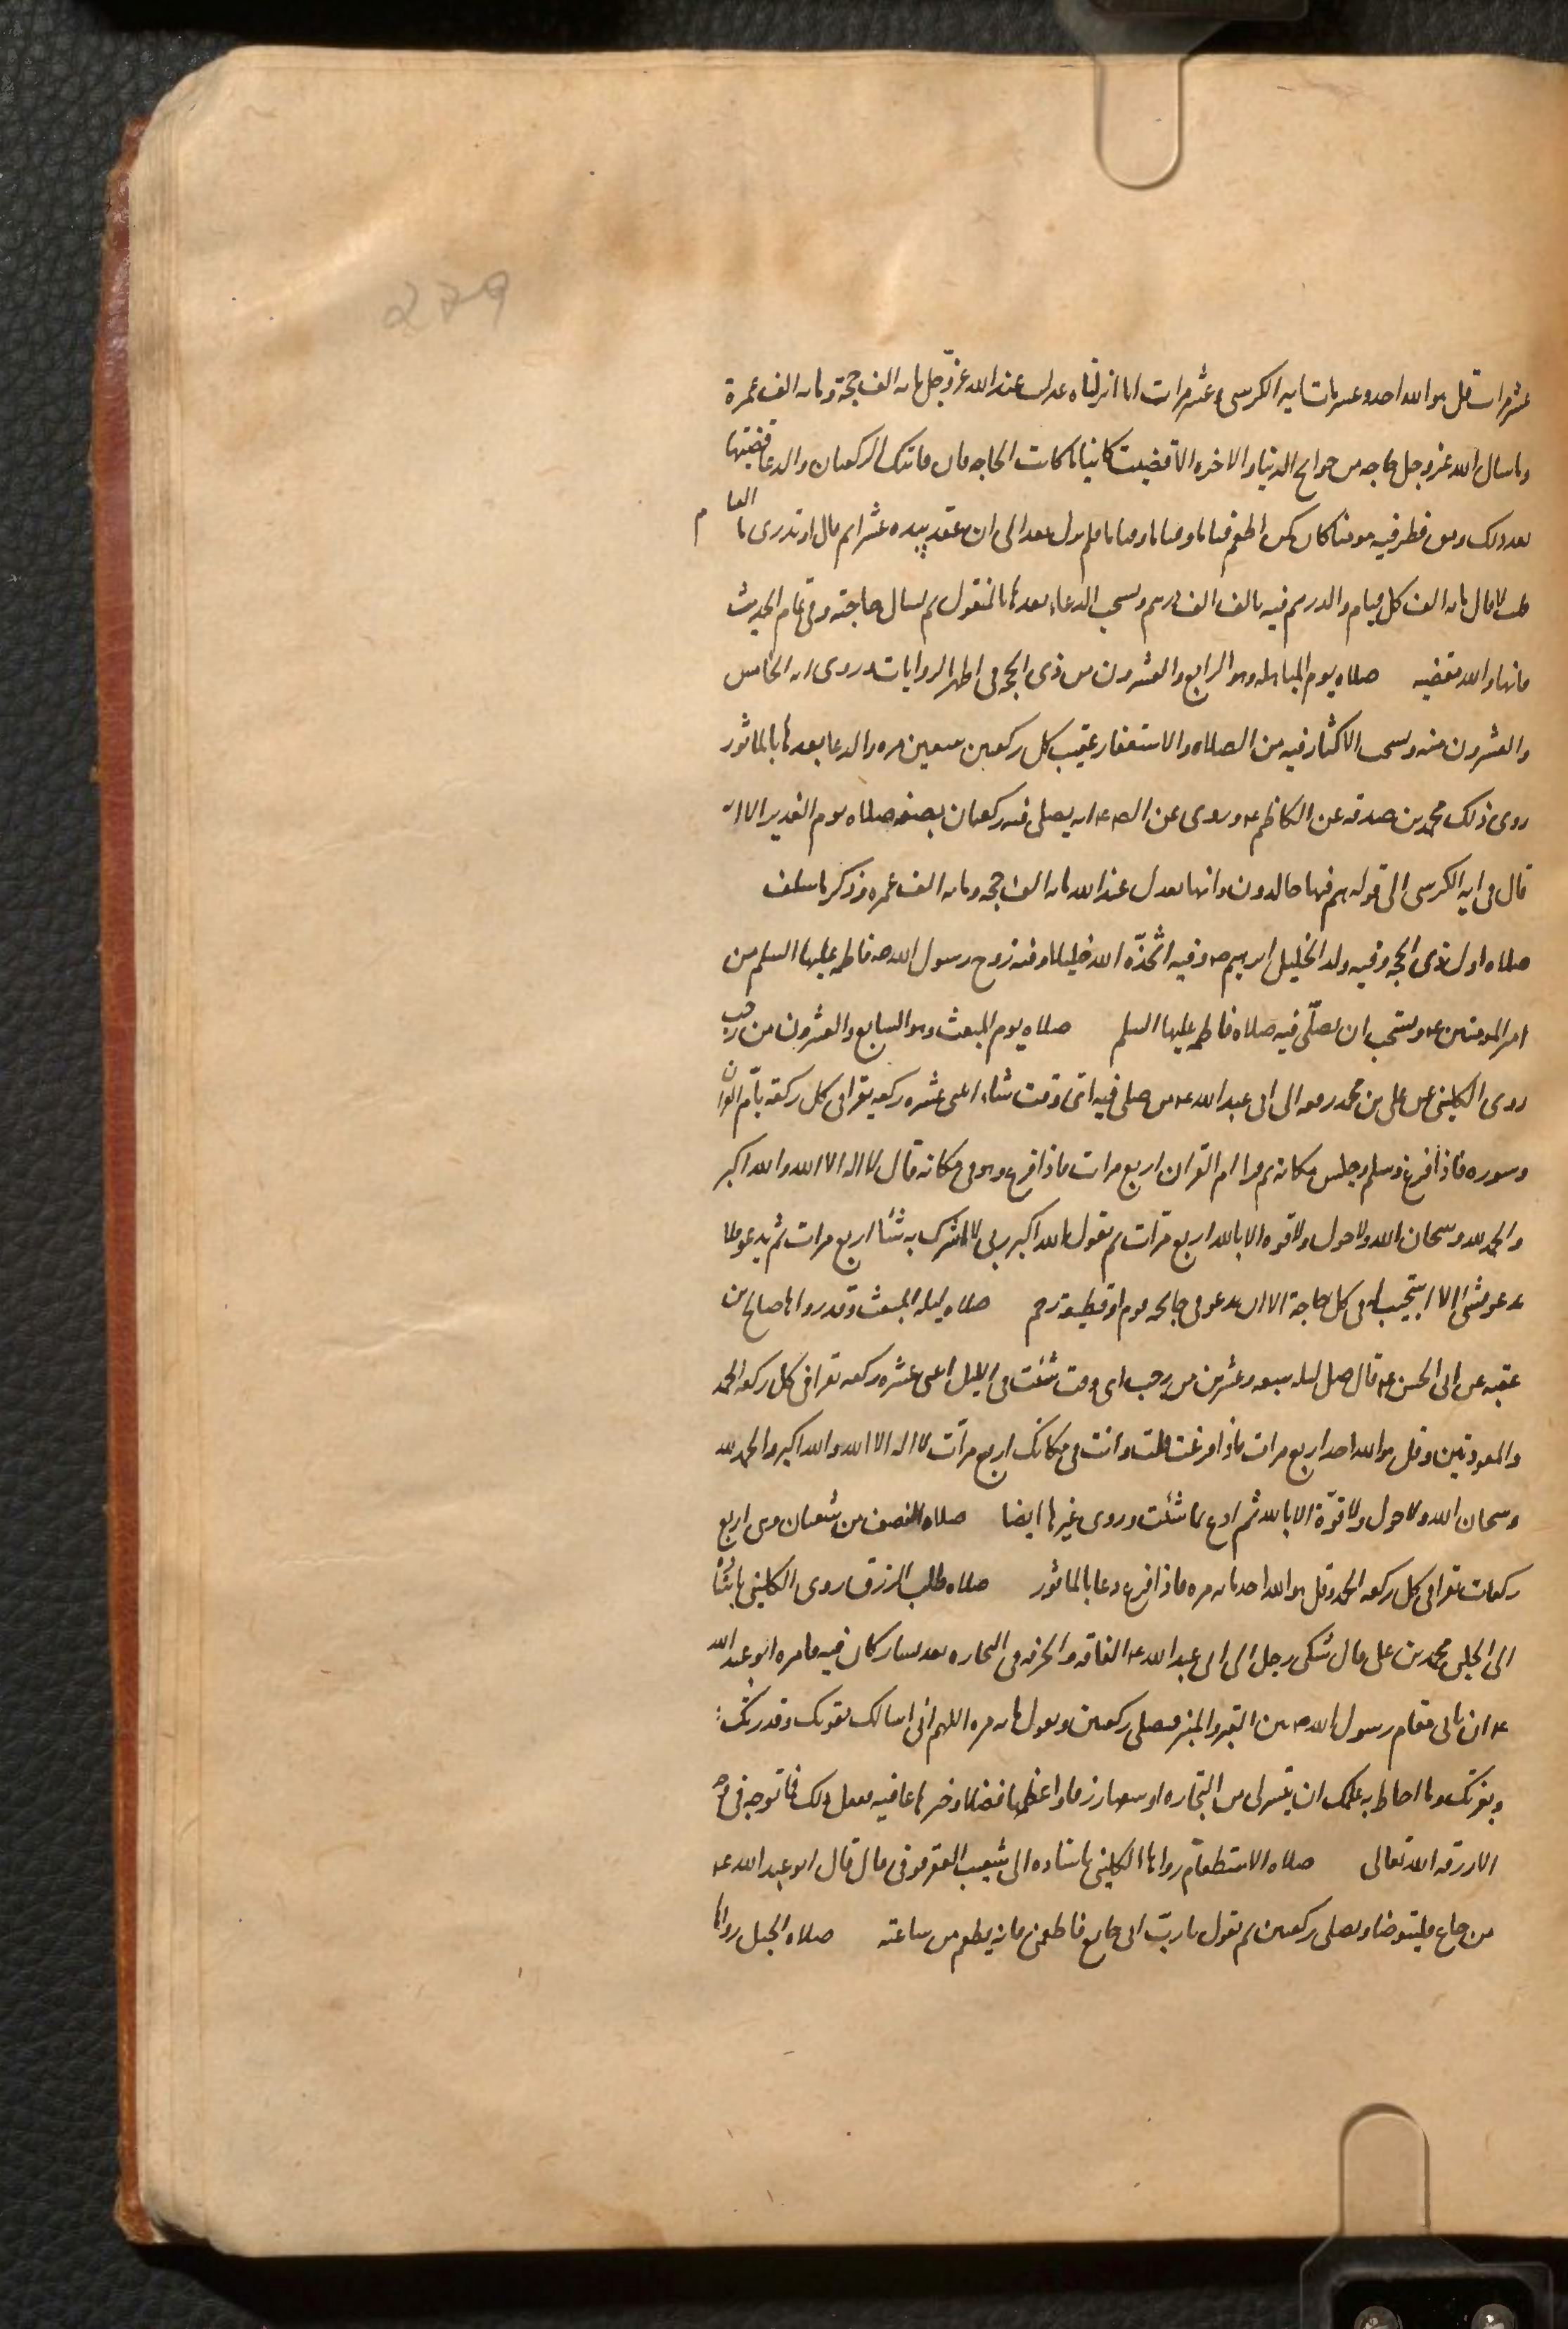 عشر مرات قل هو الله احد وعشر مرات ايه الكرسى وعشر مرات انا انزلناه عدلت عند الله عز وجل مائه الف حجة ومائه الف عمرة
وما سال الله عز وجل حاجه من حوائج الدنيا والاخره الا قضيت كائنا ما كانت الحاجه فان فاتتك الركعتان والدعا قضيتها
بعد ذلك ومن فطر فيه مومنا كان كمن اطعم فئاما وفئاما وفئاما فلم يزل يعد الى ان عقد بيده عشرا ثم قال اوتدرى ما الفئام
قلت لا قال مائه الف كل فئام والدرهم فيه بالف الف درهم ويستحب الدعاء بعدها بالمنقول ثم يسال حاجته وفى تمام الحديث
فانها والله مقضيه صلاه يوم المباهله وهو الرابع والعشرون من ذى الحجه فى اظهر الروايات وروى انه الخامس
والعشرون منه ويستحب الاكثار فيه من الصلاه والاستغفار عقيب كل ركعتين سبعين مره والدعا بعدها بالماثور
روى ذلك محمد بن صدقه عن الكاظم ع وروى عن الص ع انه يصلى فيه ركعتان بصفه صلاه يوم الغدير الا انه
قال فى ايه الكرسى الى قوله هم فيها خالدون وانها تعدل عند الله مائه الف حجه ومائه الف عمره وذكر ما سلف
صلاه اول ذى الحجه وفيه ولد الخليل ابرهيم ع وفيه اتّخذه الله خليلا وفيه زوج رسول الله ص فاطمه عليها السلم من
امير المومنين ع ويستحب ان يصلّى فيه صلاه فاطمه عليها السلم صلاه يوم المبعث وهو السابع والعشرون من رجب
روى الكلينى عن على بن محمد رفعه الى ابى عبد الله ع من صلى فيه اىّ وقت شاء اثنى عشره ركعه يقرا فى كل ركعة بامّ القران
وسوره فاذا فرغ وسلم وجلس مكانه ثم قرا ام القران اربع مرات فاذا فرغ وهو فى مكانه قال لا اله الا الله والله اكبر
والحمد لله وسبحان الله ولا حول ولا قوه الا بالله اربع مرّات ثم يقول الله الله ربى لا اشرك به شيئا اربع مرات ثم يدعو فلا
يدعو بشىء الا استجيب له فى كل حاجة الا ان يدعو فى جائحه قوم او قطيعة رحم صلاه ليله المبعث وقد رواها صالح بن
عقبه عن ابى الحسن ع قال صل ليله سبعه وعشرين من رجب اى وقت شئت فى الليل اثنى عشره ركعه تقرا فى كل ركعه الحمد
والمعوذتين وقل هو الله احد اربع مرات فاذا فرغت قلت وانت فى مكانك اربع مرّات لا اله الا الله والله اكبر والحمد لله
وسبحان الله ولا حول ولا قوّة الا بالله ثم ادع بما شئت وروى غيرها ايضا صلاه النصف من شعبان وهى اربع
ركعات يقرا فى كل ركعه الحمد وقل هو الله احد مائه مره فاذا فرغ دعا بالماثور صلاه طلب الرزق روى الكلينى باسناده
الى الحلبى محمد بن على قال شكى رجل الى ابى عبد الله ع الفاقه والحرفه فى التجاره بعد يسار كان فيه فامره ابو عبد الله
ع ان ياتى مقام رسول الله ص بين القبر والمنبر فيصلى ركعتين ويقول مائه مره اللهم انى اسالك بقوتك وقدرتك
وبعزتك وما احاط به علمك ان تيسر لى من التجاره اوسعها رزقا واعظمها فضلا وخيرها عافيه ففعل ذلك فما توجه فى وجه
الا رزقه الله تعالى صلاه الاستطعام رواها الكلينى باسناده الى شعيب العقرقوفى قال قال ابو عبد الله ع
من جاع فليتوضا ويصلى ركعتين ثم يقول يا ربّ انى جايع فاطعمنى فانه يطعم من ساعته صلاه الحبل رواها